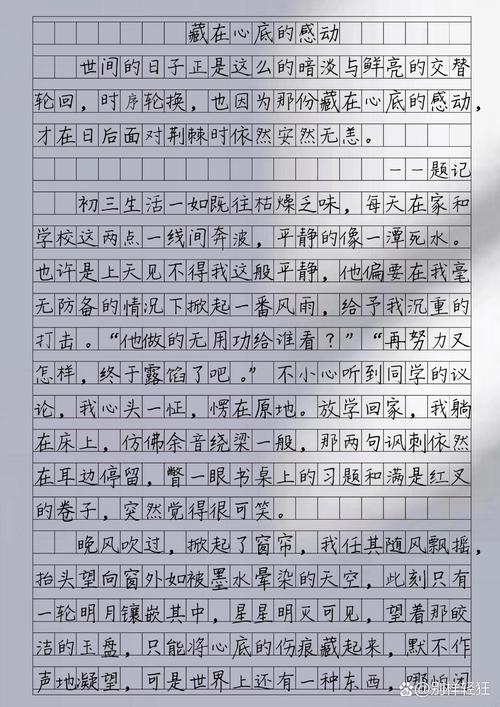 藏在心底的感动
世间的日子正是这么的暗淡与鲜亮的交替
轮回，时序轮换，也因为那份藏在心底的感动，
才在日后面对荆棘时依然安然无恙。
——题记
初三生活一如既往枯燥乏味，每天在家和
学校这两点一线间奔波，平静的像一潭死水。
也许是上天见不得我这般平静，他偏要在我毫
无防备的情况下掀起一番风雨，给予我沉重的
打击。“他做的无用功给谁看？”“再努力又
怎样，终于露馅了吧。”不小心听到同学的议
论，我心头一怔，愣在原地。放学回家，我躺
在床上，仿佛余音绕梁一般，那两句讽刺依然
在耳边停留，瞥一眼书桌上的习题和满是红叉
的卷子，突然觉得很可笑。
晚风吹过，掀起了窗帘，我任其随风飘摇，
抬头望向窗外如被墨水晕染的天空，此刻只有
一轮明月镶嵌其中，星星明灭可见，望着那皎
洁的玉盘，只能将心底的伤痕藏起来，默不作
声地凝望，可是世界上还有一种东西，哪怕闭
@别样轻狂